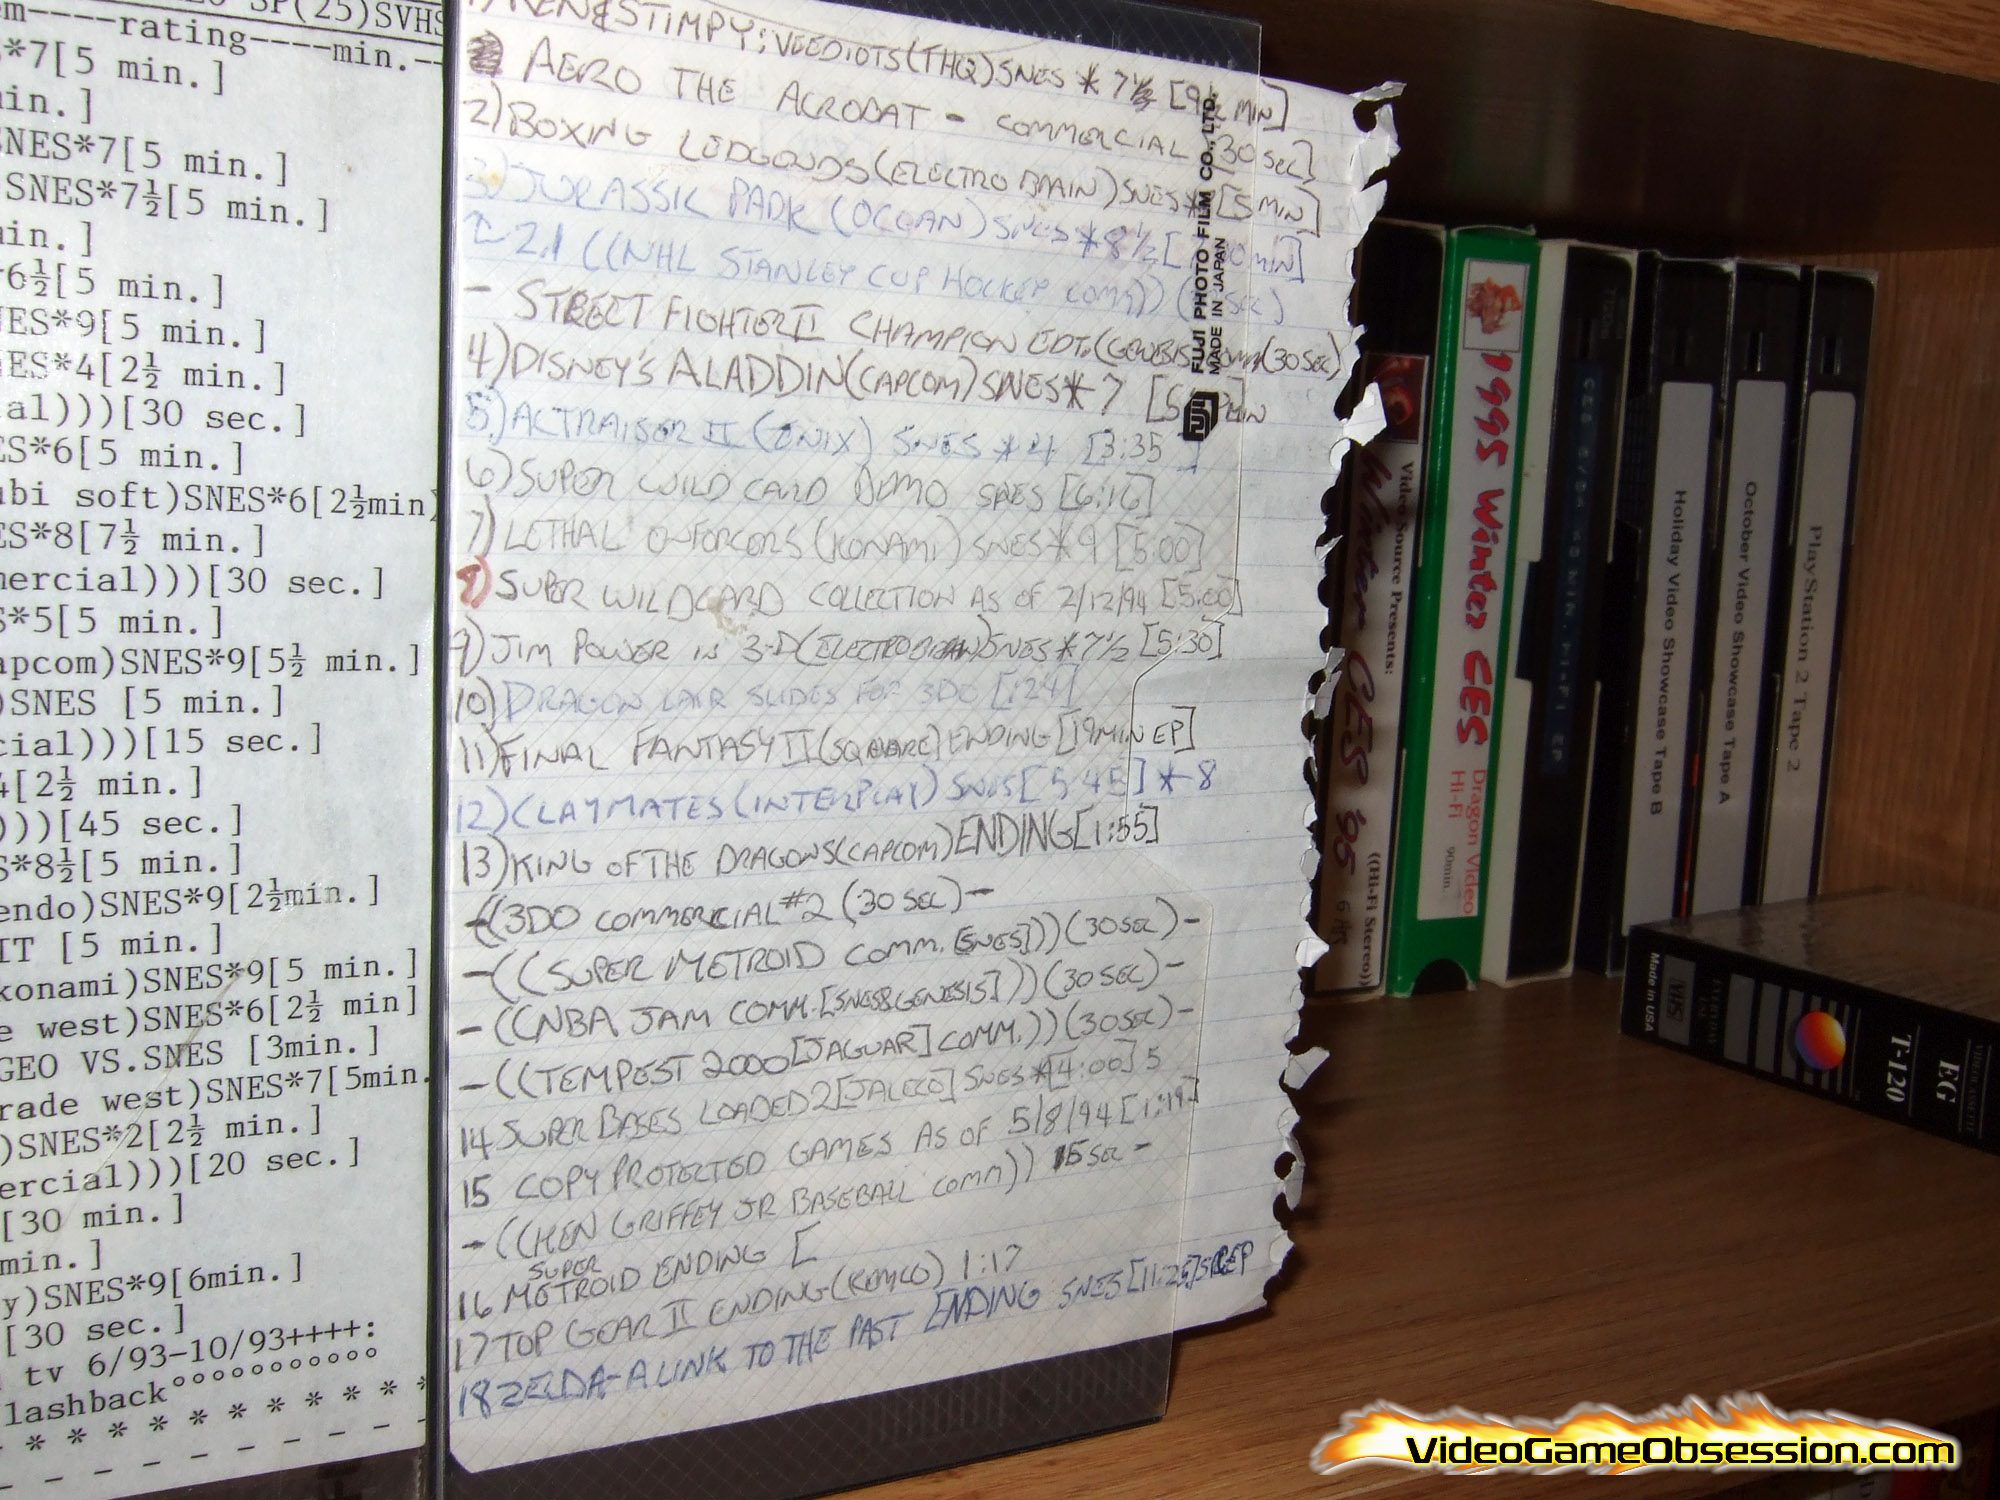 SP(25)SVHS
em----rating----min.--
*7[5 min.]
in.]
SNES*7[5 min.]
SNES*7½[5 min.]
in.]
6½[5 min.]
NES*9[5 min.]
NES*4[2½ min.]
ial)))[30 sec.]
ES*6[5 min.]
ubi soft)SNES*6[2½min)
ES*8[7½ min.]
mercial)))[30 sec.]
S*5[5 min.]
apcom)SNES*9[5½ min.]
)SNES [5 min.]
cial)))[15 sec.]
4[2½ min.]
)))[45 sec.]
S*8½[5 min.]
endo)SNES*9[2½min.]
IT [5 min.]
konami)SNES*9[5 min.]
e west)SNES*6[2½ min]
GEO VS.SNES [3min.]
rade west)SNES*7[5min.
)SNES*2[2½ min.]
ercial)))[20 sec.]
[30 min.]
min.]
y)SNES*9[6min.]
[30 sec.]
tv 6/93-10/93++++:
lashback°°°°°°°°°°
* * * * * * * * *
- - - - - - - -
1) REN & STIMPY: VEEDIOTS (THQ) SNES * 7½ [9½ MIN]
AERO THE ACROBAT - COMMERCIAL (30 SEC)
2) BOXING LEDGONDS (ELECTRO BRAIN) SNES * [5 MIN]
3) JURASSIC PARK (OCEAN) SNES * 8½ [ MIN]
2.1 ((NHL STANLEY CUP HOCKEY COMM)) ( SEC)
- STREET FIGHTER II CHAMPION EDT. (GENESIS COMM (30 SEC)
4) DISNEY'S ALADDIN (CAPCOM) SNES * 7 [5 MIN
5) ACTRAISER II (ENIX) SNES * 4 [3:35]
6) SUPER WILD CARD DEMO SNES [6:16]
7) LETHAL ENFORCERS (KONAMI) SNES * 9 [5:00]
8) SUPER WILDCARD COLLECTION AS OF 2/12/94 [5:00]
9) JIM POWER IN 3-D (ELECTROBRAIN) SNES * 7½ [5:30]
10) DRAGON LAIR SLIDES FOR 3DO [:24]
11) FINAL FANTASY II (SQUARE) ENDING [19 MIN EP]
12) CLAYMATES (INTERPLAY) SNES [5:45] * 8
13) KING OF THE DRAGONS (CAPCOM) ENDING [1:55]
-((3DO COMMERCIAL #2 (30 SEC) -
-((SUPER METROID COMM. [SNES])) (30 SEC) -
-((NBA JAM COMM. [SNES & GENESIS])) (30 SEC) -
-((TEMPEST 2000 [JAGUAR] COMM.)) (30 SEC) -
14 SUPER BASES LOADED 2 [JALECO] SNES * [4:00] 5
15 COPY PROTECTED GAMES AS OF 5/8/94 [1:19]
-((KEN GRIFFEY JR BASEBALL COMM)) 15 SEC -
16 SUPER METROID ENDING [
17 TOP GEAR II ENDING (KEMCO) 1:17
18 ZELDA - A LINK TO THE PAST ENDING SNES [11:25] EP
FUJI PHOTO FILM CO., LTD.
MADE IN JAPAN
FUJI
Video Source Presents:
Winter CES '95
((Hi-Fi Stereo))
6 Hr
1995 Winter CES
Dragon Video
HI-Fi
90min.
Holiday Video Showcase Tape B
October Video Showcase Tape A
PlayStation 2 Tape 2
Made in USA
VHS
T-120
EG
VIDEOCASSETTE
VideoGameObsession.com